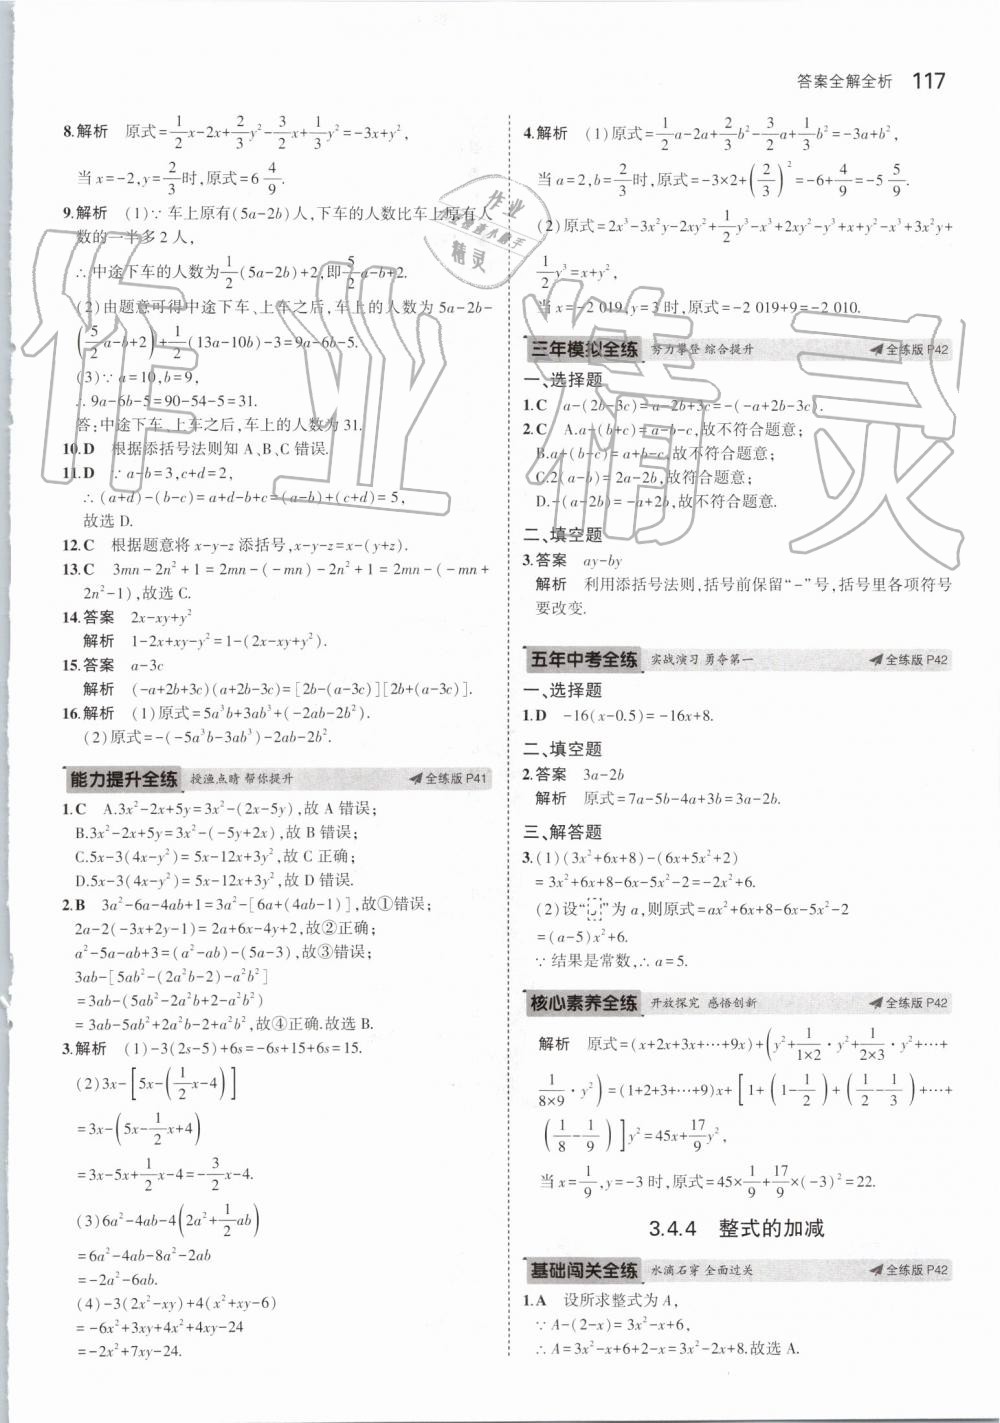 答案全解全析 117
8.解析 原式=1/2x-2x+2/3y²-3/2x+1/3y²=-3x+y²,
当x=-2,y=2/3时,原式=6 4/9.
9.解析 (1)∵车上原有(5a-2b)人,下车的人数比车上原有人
数的一半多2人,
∴中途下车的人数为1/2(5a-2b)+2,即5/2a-b+2.
(2)由题意可得中途下车、上车之后,车上的人数为5a-2b-
(5/2a-b+2)+1/2(13a-10b)-3=9a-6b-5.
(3)∵a=10,b=9,
∴9a-6b-5=90-54-5=31.
答:中途下车、上车之后,车上的人数为31.
10.D 根据添括号法则知A、B、C错误.
11.D ∵a-b=3,c+d=2,
∴(a+d)-(b-c)=a+d-b+c=(a-b)+(c+d)=5,
故选D.
12.C 根据题意将x-y-z添括号,x-y-z=x-(y+z).
13.C 3mn-2n²+1=2mn-(-mn)-2n²+1=2mn-(-mn+
2n²-1),故选C.
14.答案 2x-xy+y²
解析 1-2x+xy-y²=1-(2x-xy+y²).
15.答案 a-3c
解析 (-a+2b+3c)(a+2b-3c)=[2b-(a-3c)][2b+(a-3c)].
16.解析 (1)原式=5a³b+3ab³+(-2ab-2b²).
(2)原式=-(-5a³b-3ab³)-2ab-2b².
能力提升全练 授渔点睛 帮你提升 全练版P41
1.C A.3x²-2x+5y=3x²-(2x-5y),故A错误;
B.3x²-2x+5y=3x²-(-5y+2x),故B错误;
C.5x-3(4x-y²)=5x-12x+3y²,故C正确;
D.5x-3(4x-y²)=5x-12x+3y²,故D错误.
2.B 3a²-6a-4ab+1=3a²-[6a+(4ab-1)],故①错误;
2a-2(-3x+2y-1)=2a+6x-4y+2,故②正确;
a²-5a-ab+3=(a²-ab)-(5a-3),故③错误;
3ab-[5ab²-(2a²b-2)-a²b²]
=3ab-(5ab²-2a²b+2-a²b²)
=3ab-5ab²+2a²b-2+a²b²,故④正确.故选B.
3.解析 (1)-3(2s-5)+6s=-6s+15+6s=15.
(2)3x-[5x-(1/2x-4)]
=3x-(5x-1/2x+4)
=3x-5x+1/2x-4=-3/2x-4.
(3)6a²-4ab-4(2a²+1/2ab)
=6a²-4ab-8a²-2ab
=-2a²-6ab.
(4)-3(2x²-xy)+4(x²+xy-6)
=-6x²+3xy+4x²+4xy-24
=-2x²+7xy-24.
4.解析 (1)原式=1/2a-2a+2/3b²-3/2a+1/3b²=-3a+b²,
当a=2,b=2/3时,原式=-3×2+(2/3)²=-6+4/9=-5 5/9.
(2)原式=2x³-3x²y-2xy²+1/2y³-x³+2xy²-y³+x+y²-x³+3x²y+
1/2y³=x+y²,
当x=-2 019,y=3时,原式=-2 019+9=-2 010.
三年模拟全练 努力攀登 综合提升 全练版P42
一、选择题
1.C a-(2b-3c)=a-2b+3c=-(-a+2b-3c).
2.C A.a-(b+c)=a-b-c,故不符合题意;
B.a+(b-c)=a+b-c,故不符合题意;
C.2(a-b)=2a-2b,故符合题意;
D.-(a-2b)=-a+2b,故不符合题意.
二、填空题
3.答案 ay-by
解析 利用添括号法则,括号前保留“-”号,括号里各项符号
要改变.
五年中考全练 实战演习 勇夺第一 全练版P42
一、选择题
1.D -16(x-0.5)=-16x+8.
二、填空题
2.答案 3a-2b
解析 原式=7a-5b-4a+3b=3a-2b.
三、解答题
3.(1)(3x²+6x+8)-(6x+5x²+2)
=3x²+6x+8-6x-5x²-2=-2x²+6.
(2)设“ ”为a,则原式=ax²+6x+8-6x-5x²-2
=(a-5)x²+6.
∵结果是常数,∴a=5.
核心素养全练 开放探究 感悟创新 全练版P42
解析 原式=(x+2x+3x+⋯+9x)+(y²+1/1×2·y²+1/2×3·y²+⋯+
1/8×9·y²)=(1+2+3+⋯+9)x+[1+(1-1/2)+(1/2-1/3)+⋯+
(1/8-1/9)]y²=45x+17/9y²,
当x=1/9,y=-3时,原式=45×1/9+17/9×(-3)²=22.
3.4.4 整式的加减
基础闯关全练 水滴石穿 全面过关 全练版P42
1.A 设所求整式为A,
∵A-(2-x)=3x²-x+6,
∴A=3x²-x+6+2-x=3x²-2x+8.故选A.
作业精灵